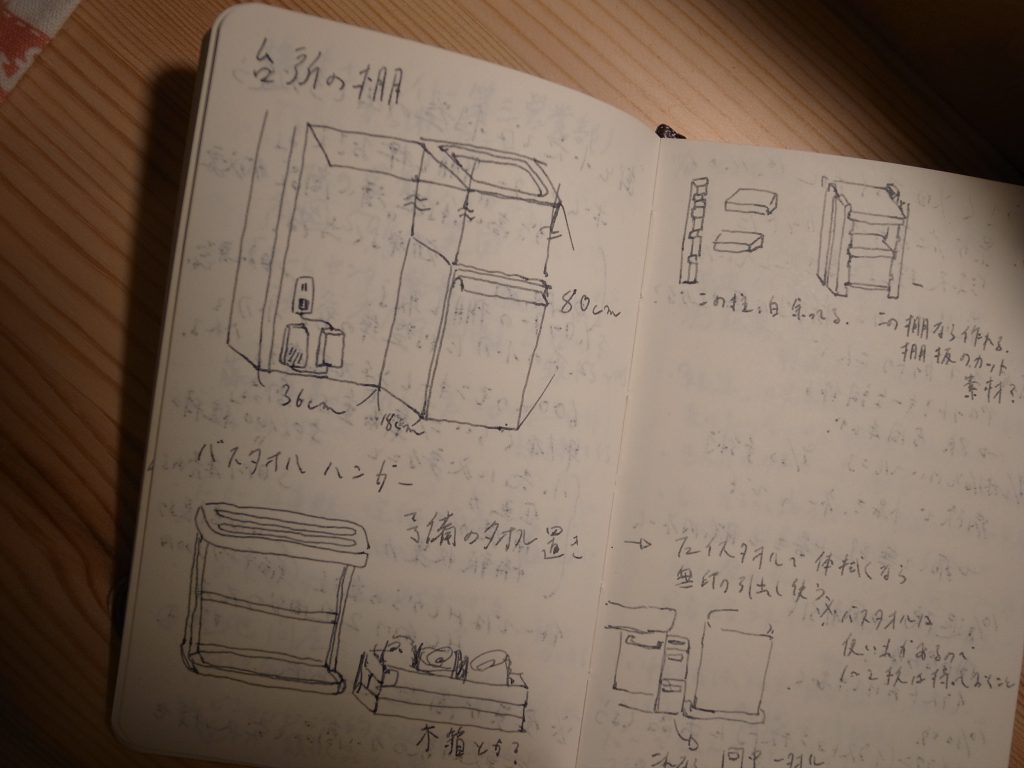 台所の棚
80cm
36cm
18cm
バスタオルハンガー
予備のタオル置き
木箱とか?
この柱、白、余ってる。
この棚なら作れる。
棚板のカット
素材
→ フェイスタオルで体拭くなら
無印の引出し使う。
※バスタオルは
使い道があるので
1〜2枚は持っておくこと